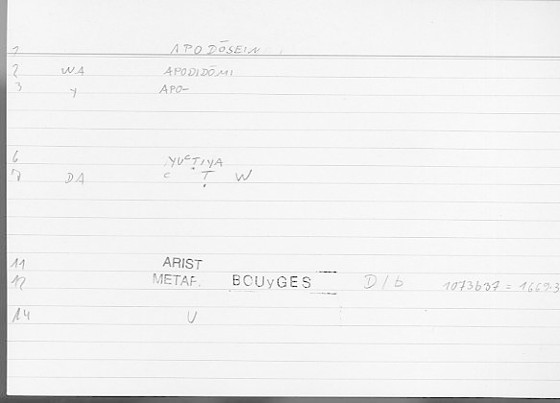 1 APODŌSEIN
2 WA APODIDŌMI
3 Y APO-
6 YUᶜṬIYA
7 DA ᶜ Ṭ W
11 ARIST
12 METAP. BOUyGES D/b 1073b37 = 1669.3
14 U